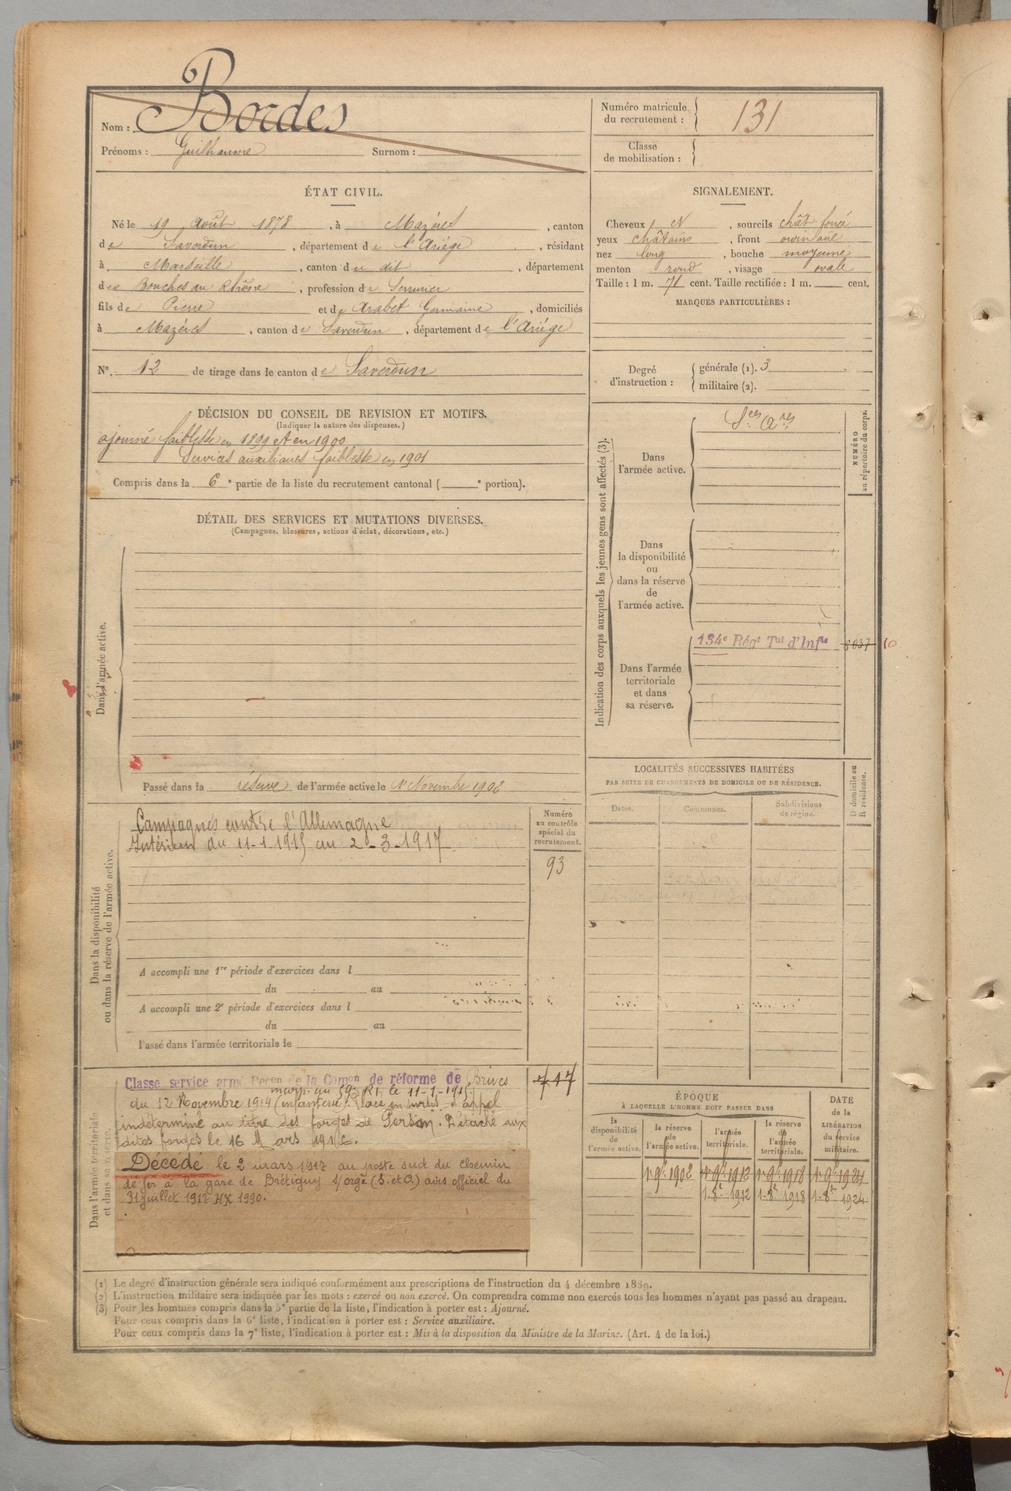 Nom : Bordes
Prénoms : Guilhaume Surnom :
Numéro matricule du recrutement : 131
Classe de mobilisation :
ÉTAT CIVIL.
Né le 19 Août 1878, à Mazères, canton
de Saverdun, département de l'Ariège, résidant
à Marseille, canton du dit, département
des Bouches du Rhône, profession de Serrurier
fils de Pierre et de Arabet Germaine, domiciliés
à Mazères, canton de Saverdun, département de l'Ariège
N° 12 de tirage dans le canton de Saverdun
SIGNALEMENT.
Cheveux N, sourcils chât foncé
yeux châtains, front
nez long, bouche moyenne
menton rond, visage ovale
Taille : 1 m. 71 cent. Taille rectifiée : 1 m. cent.
MARQUES PARTICULIÈRES :
Degré d'instruction : générale (1). 3
militaire (2).
DÉCISION DU CONSEIL DE REVISION ET MOTIFS.
(Indiquer la nature des dispenses.)
ajourné faiblesse en 1899 et en 1900
services auxiliaires faiblesse en 1901
Compris dans la 6e partie de la liste du recrutement cantonal ( e portion).
DÉTAIL DES SERVICES ET MUTATIONS DIVERSES.
(Campagnes, blessures, actions d'éclat, décorations, etc.)
Dans l'armée active.
Passé dans la réserve de l'armée active le 1er Novembre 1902
Indication des corps auxquels les jeunes gens sont affectés (3).
NUMÉRO au répertoire du corps.
Dans l'armée active.
Ses Ares
Dans la disponibilité ou dans la réserve de l'armée active.
Dans l'armée territoriale et dans sa réserve.
134e Régt Tal d'Infie
10
LOCALITÉS SUCCESSIVES HABITÉES
PAR SUITE DE CHANGEMENTS DE DOMICILE OU DE RÉSIDENCE.
Dates. Communes. Subdivisions de région. D domicile ou R résidence.
Dans la disponibilité ou dans la réserve de l'armée active.
Campagnes contre l'Allemagne
Intérieur du 11-1-1915 au 2-3-1917
Numéro au contrôle spécial du recrutement.
93
A accompli une 1re période d'exercices dans l
du au
A accompli une 2e période d'exercices dans l
du au
Passé dans l'armée territoriale le
Dans l'armée territoriale et dans sa réserve.
Classe service armé Décon de la Comon de réforme de Privas
incorp. au 59e RI le 11-1-1915
du 12 Novembre 1914 (infanterie). Placé en sursis d'appel
indéterminé au titre des forges de Persan. Détaché aux
dites forges le 16 Mars 1916.
Décédé le 2 mars 1917 au poste sud du chemin
de fer à la gare de Brétigny s/orge (S. et O) avis officiel du
31 juillet 1917 HX 1990.
747
ÉPOQUE
À LAQUELLE L'HOMME DOIT PASSER DANS
la disponibilité de l'armée active. la réserve de l'armée active. l'armée territoriale. la réserve de l'armée territoriale. DATE de la LIBÉRATION du service militaire.
1er 9bre 1902 1er 9bre 1912 1er 9bre 1918 1er 9bre 1924
1-8e 1912 1-8e 1918 1-8e 1924
(1) Le degré d'instruction générale sera indiqué conformément aux prescriptions de l'instruction du 4 décembre 1889.
(2) L'instruction militaire sera indiquée par les mots : exercé ou non exercé. On comprendra comme non exercés tous les hommes n'ayant pas passé au drapeau.
(3) Pour les hommes compris dans la 5e partie de la liste, l'indication à porter est : Ajourné.
Pour ceux compris dans la 6e liste, l'indication à porter est : Service auxiliaire.
Pour ceux compris dans la 7e liste, l'indication à porter est : Mis à la disposition du Ministre de la Marine. (Art. 4 de la loi.)